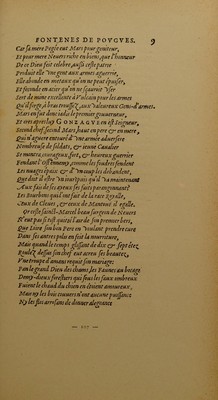 FONTENES DE POVGVES. 9
Car sa mere Pegle eut Mars pour geniteur,
Et pour mere Neuers riche en biens, que l'honneur
De ce Dieu feit celebre, aussi ceste patrie
Produit elle vne gent aux armes aguerrie,
Elle abonde en metaux qu'on ne peut épuiser,
Et feconde en acier qu'on ne sçauroit vser
Sert de mine excellente à Vulcain pour les armes
Qu'il forge, à bras troussez, aux valeureux Gens-d'armes.
Mars en fut donc iadis le premier gouuerneur,
Et ores apres luy GONZAGVE en est Seigneur,
Second chef, second Mars, haut en pere & en mere,
Qui d'aguerre entouré d'vne armée aduersere
Nombreuse de soldats, & ieune Canalier
Se montra courageux, fort, & heureux guerrier
Fendant l'ost ennemy, comme les foudres fendent
Les nuages épaix & d'vn coup les debandent,
Que doit il estre vn iour puis qu'il va maintenant
Aux faicts de ses ayeux ses faicts parangonnant?
Les Bourbons qui d'vne fut de la race Royalle,
Ceux de Cleues, & ceux de Mantoue il egalle.
Or ceste sainct-Marcel beau surgeon de Neuers
N'eut pas si tost quité l'aer de son premier bers,
Que Loire son bon Pere en voulant prendre cure
Dans ses antres polis en feit la nourriture,
Mais quand le temps glissant de dix & sept étez
Roulez dessus son chef eut acreu ses beautez,
Vne troupe d'amans requit son mariage:
Pan le grand Dieu des chams, les Faunes au bocage
Demy-dieux forestiers qui sous les faux ombreux
Fuient le chaud du chien en étoient amoureux,
Mais ny les bois couuers n'ont aucune puissance
Ny les flus arrosans de donner alegeance
— 177 —